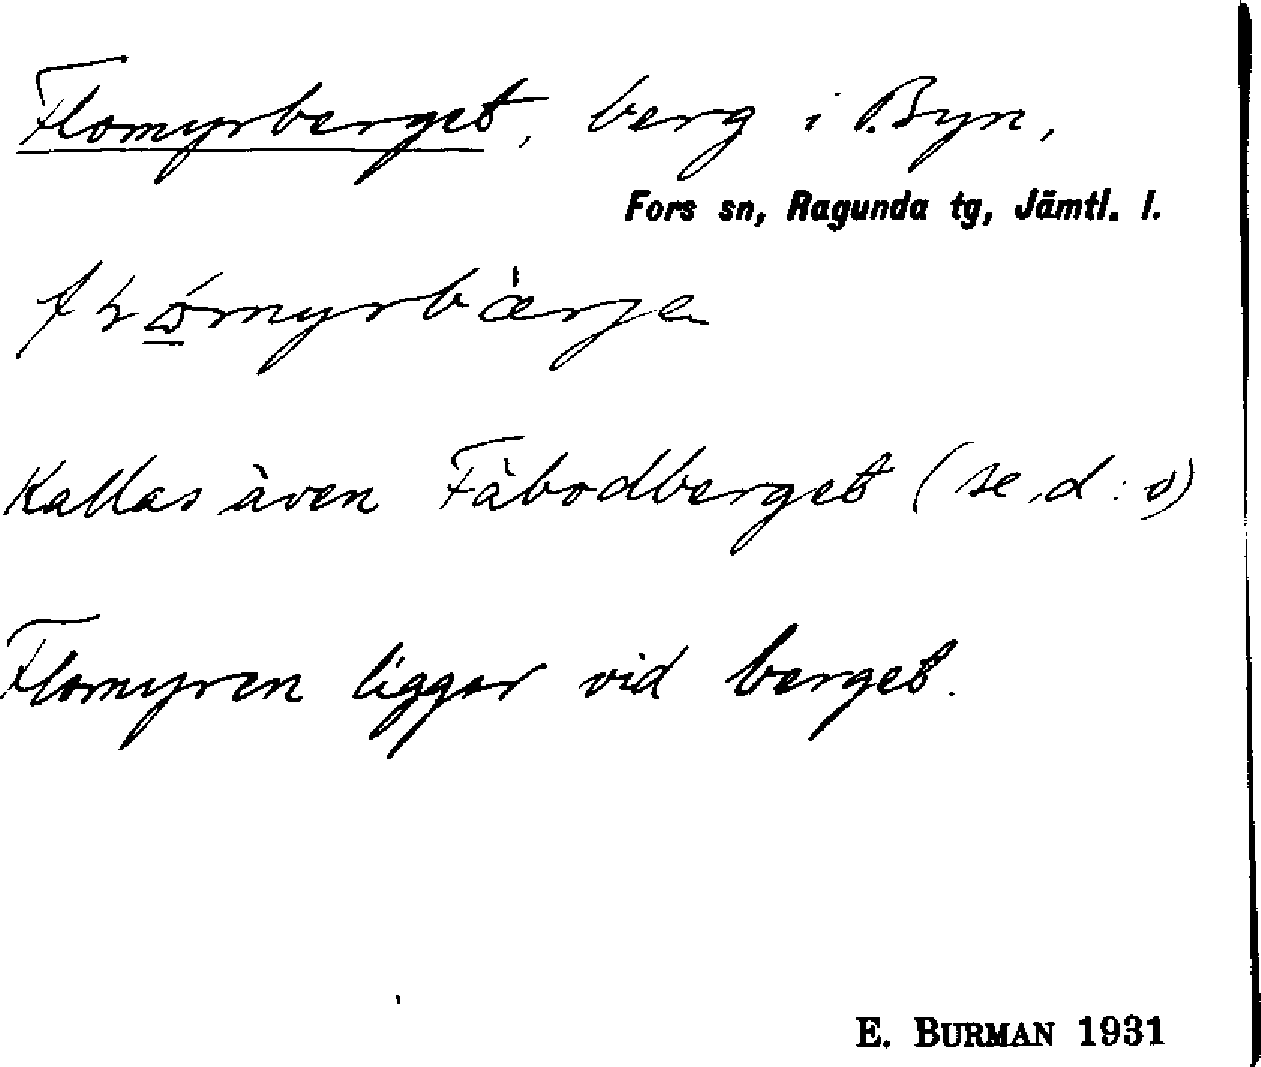 Flomyrberget, berg i Byn,
Fors sn, Ragunda tg, Jämtl. l.
Kallas även Fäbodberget (se d:o)
Flomyren ligger vid berget.
E. BURMAN 1931